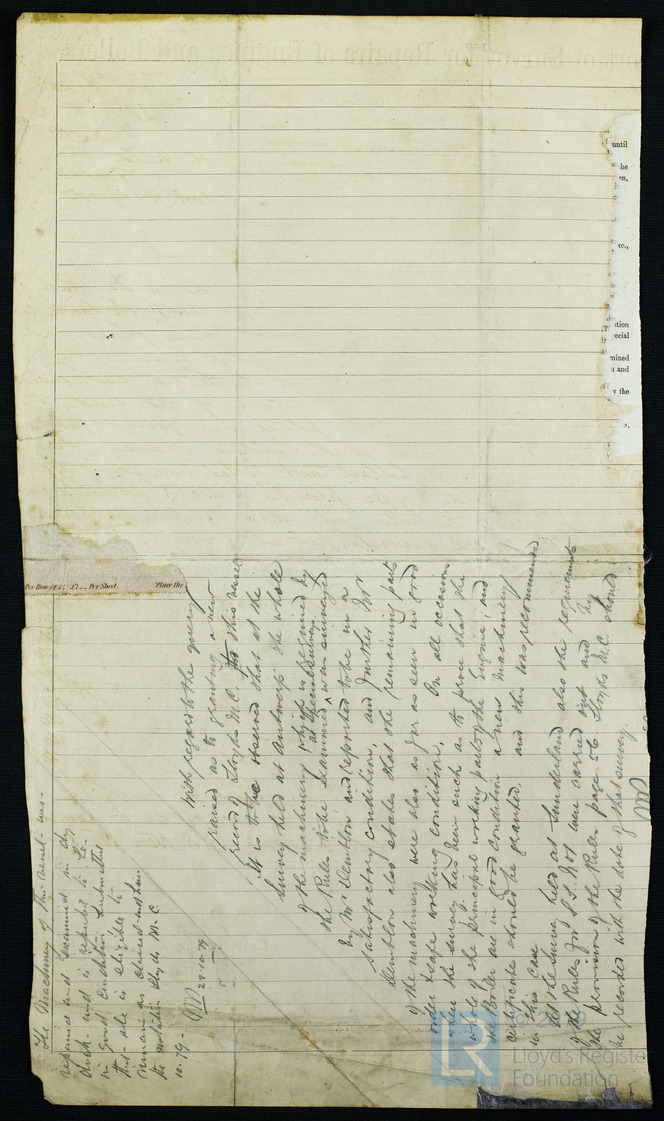 The Machinery of this vessel was
repaired and examined in dry
dock and is reported to be
in good condition. Submitted
that she is eligible to
remain as classed and have
the notation Lloyds M.C.
10.79.
28.10.79
With regard to the query
raised as to granting a new
record of Lloyds M.C. for this vessel
it is to be observed that at the
Survey held at Antwerp the whole
of the machinery which is required by
the Rules to be examined at Special Survey was surveyed
by Mr Demblon and reported to be in a
satisfactory condition, and further Mr
Demblon also states that the remaining parts
of the machinery were also as far as seen in good
order & safe working condition. On all occasions
when the survey has been such as to prove that the
whole of the principal working parts of the Engine, and
the Boiler are in good condition a new Machinery
certificate should be granted, and this was recommended
in this case
At the Survey held at Sunderland also the requirements
of the Rules for S.S. No 1 were carried out and by
the provision of the Rules page 56 Lloyds M.C. should
be recorded with the date of that survey
Report of Survey for Repairs of Engines and Boilers
until
he
en,
tc.,
tion
ecial
mined
and
y the
Per Sheet.
Place the
© 2018
LR
Lloyd's Register
Foundation